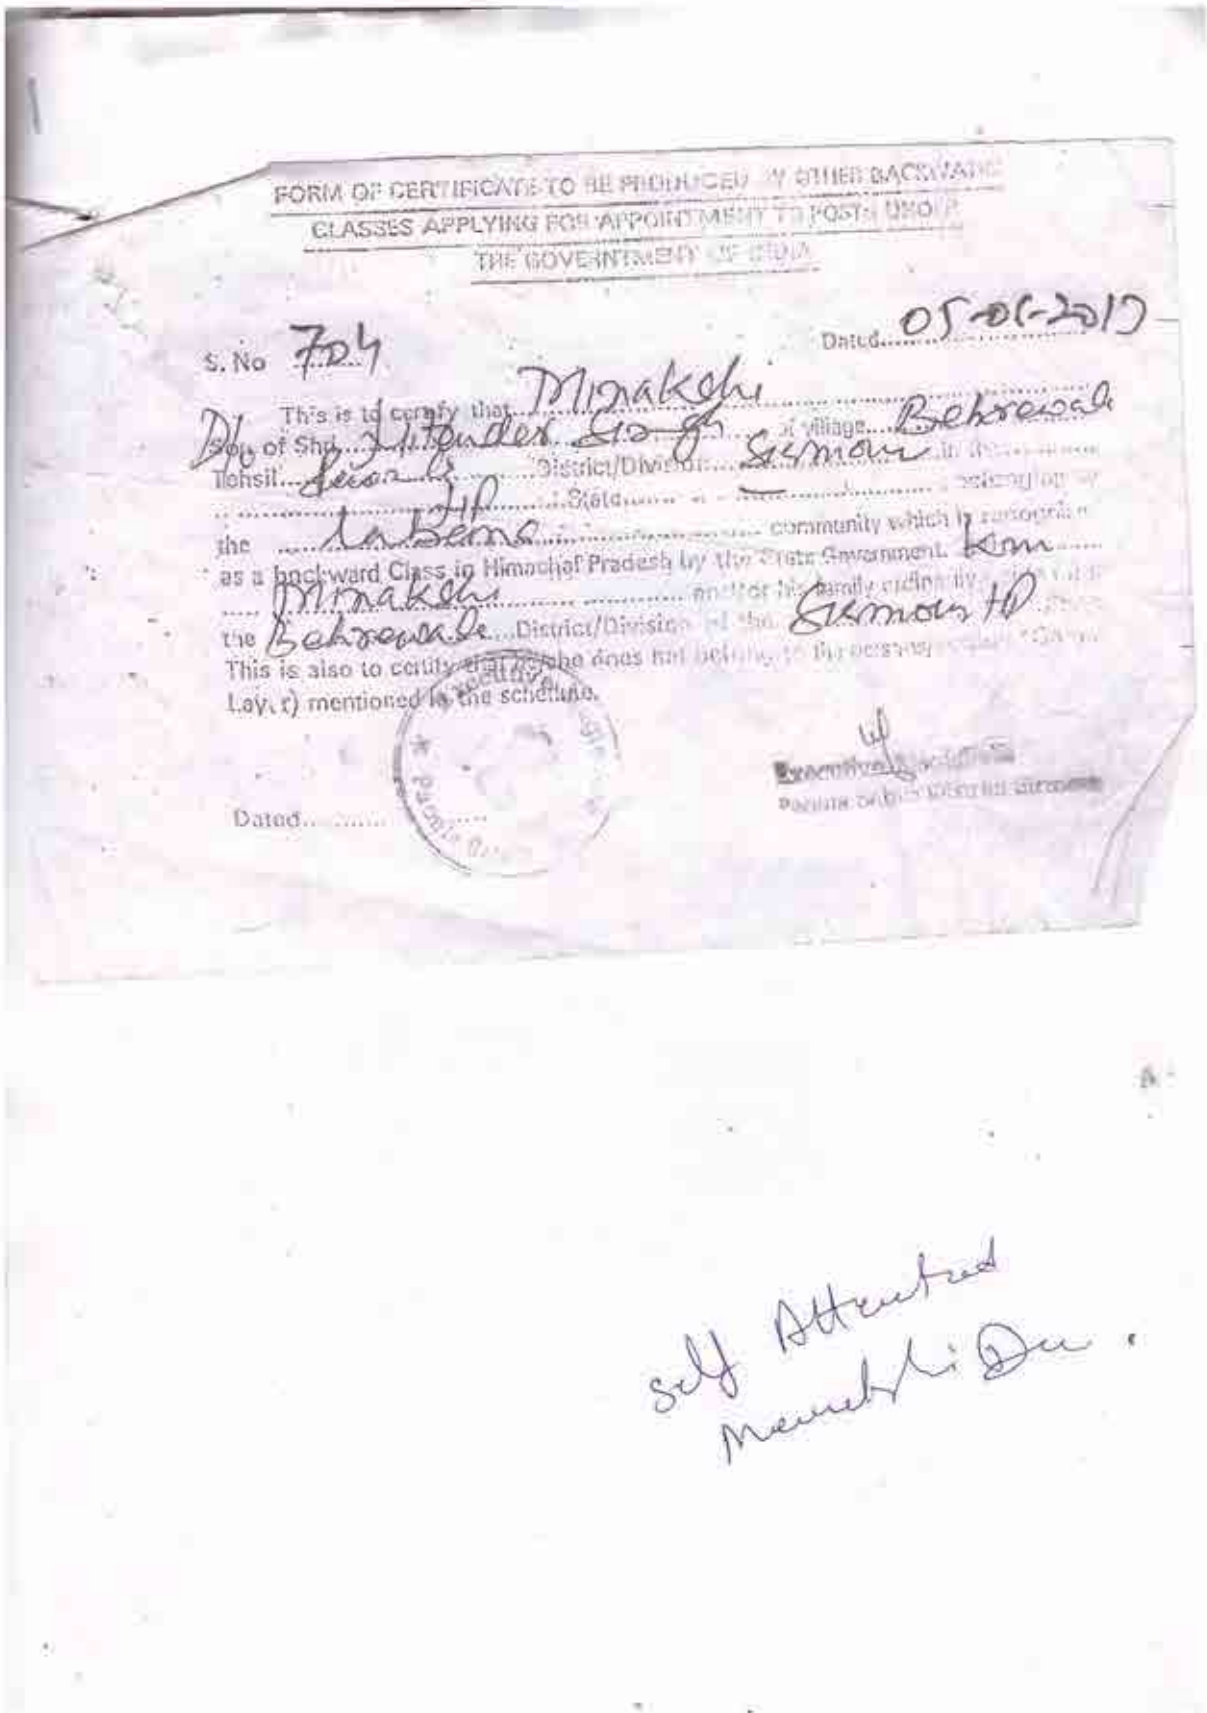 FORM OF CERTIFICATE TO BE PRODUCED BY OTHER BACKWARD
CLASSES APPLYING FOR APPOINTMENT TO POSTS UNDER
THE GOVERNTMENT OF INDIA
S. No 704 Dated
This is to certify that Minakshi
D/o of Shri Jitender Singh of village Behrewala
Tehsil District/Division Sirmour in the
HP State belonging to
the Labana community which is
as a backward Class in Himachal Pradesh by the State Government. Km
Minakshi and/or his family
the Behrewala District/Division of the Sirmour HP
This is also to certify that he/she does not belong to the persons
Layer) mentioned in the schedule.
Executive
Dated
Self Attested